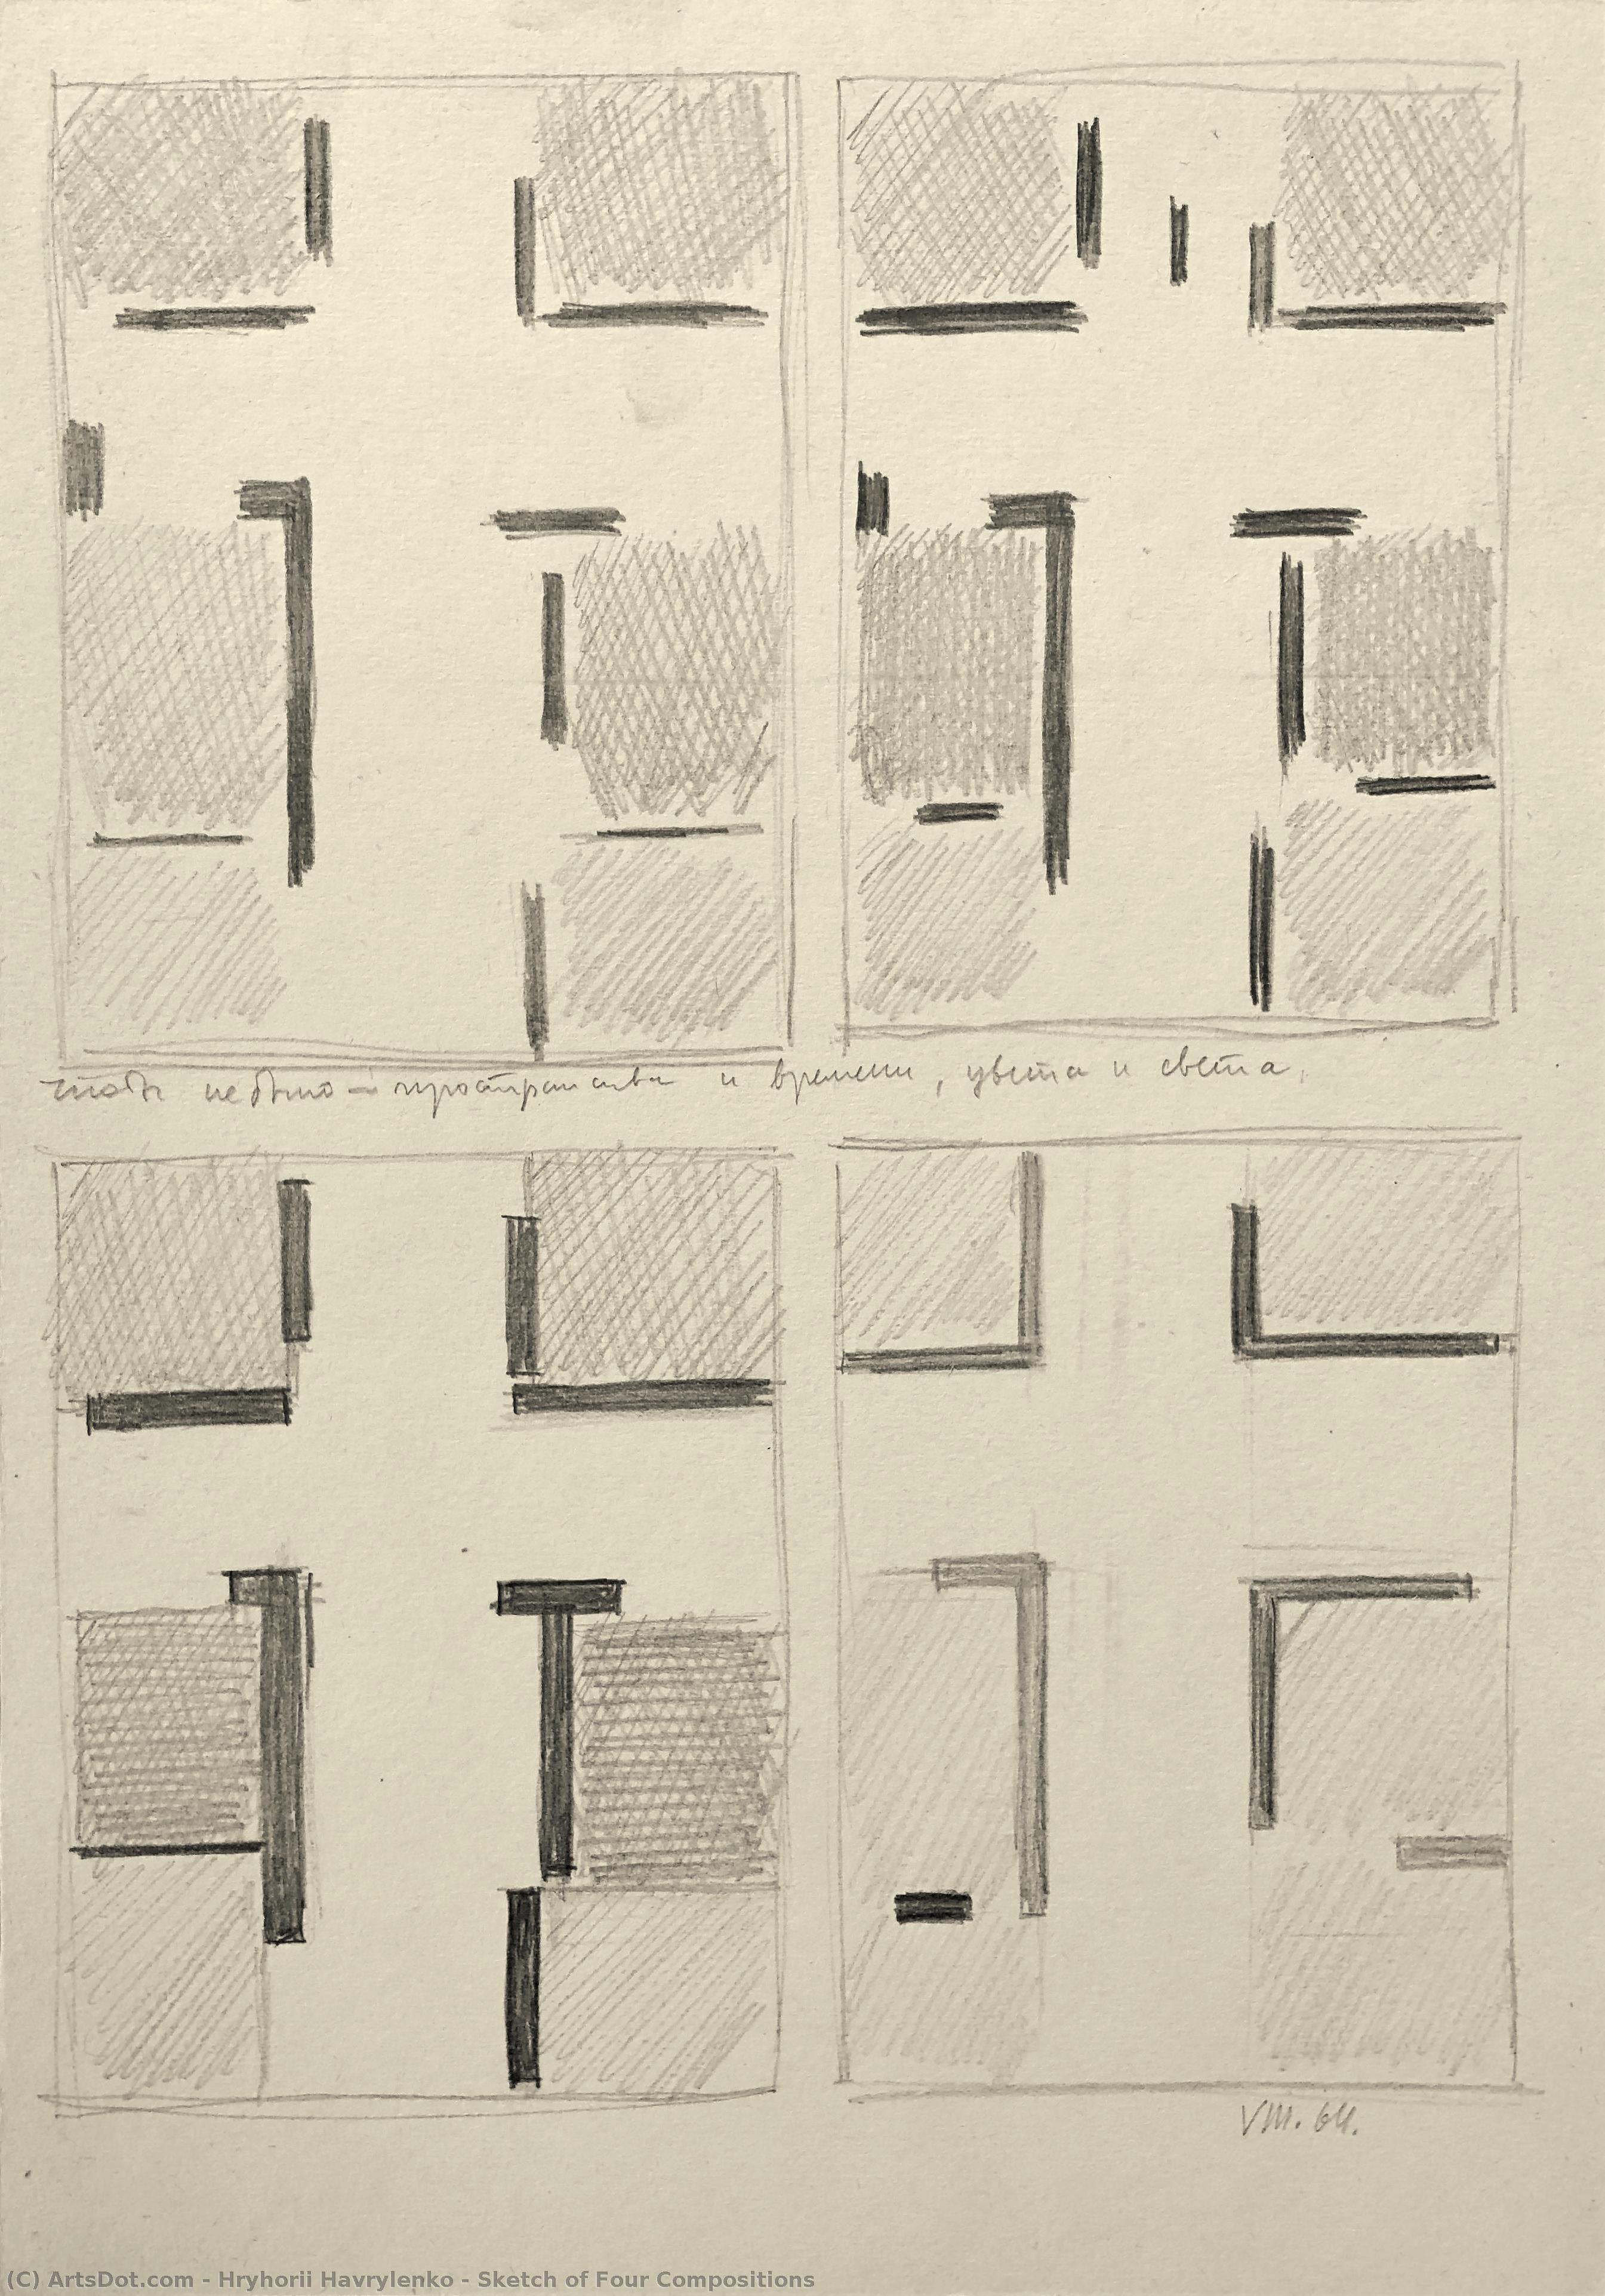 чтобы не было – пространства и времени, цвета и света.
VIII. 64.
(C) ArtsDot.com - Hryhorii Havrylenko - Sketch of Four Compositions